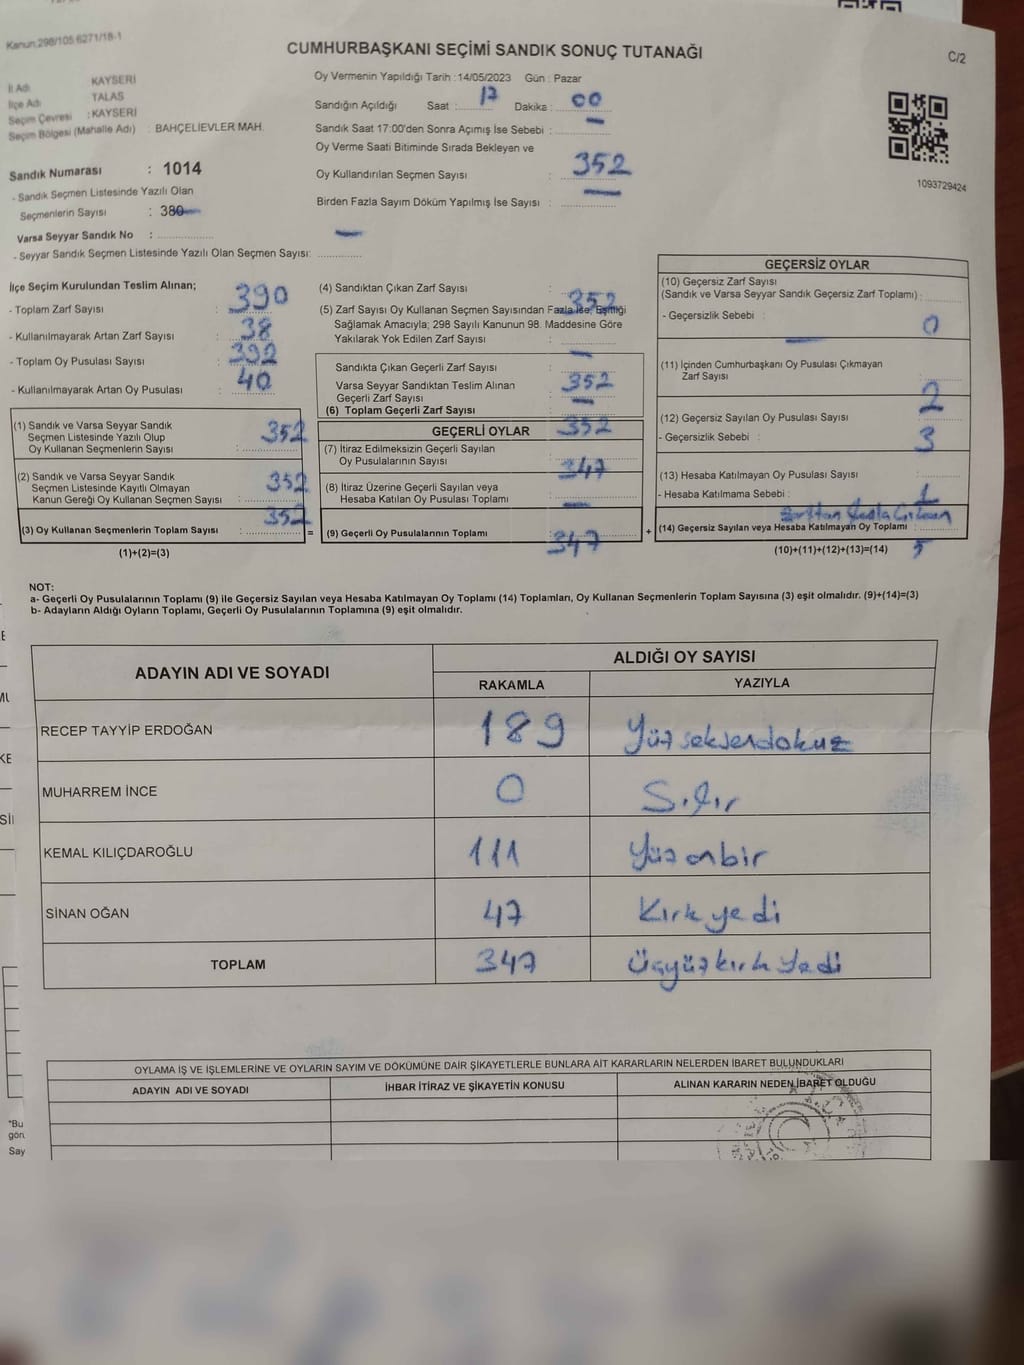 Kanun:298/105.6271/18-1
CUMHURBAŞKANI SEÇİMİ SANDIK SONUÇ TUTANAĞI
C/2
İl Adı KAYSERİ
İlçe Adı TALAS
Seçim Çevresi : KAYSERİ
Seçim Bölgesi (Mahalle Adı) : BAHÇELİEVLER MAH.
Oy Vermenin Yapıldığı Tarih :14/05/2023 Gün : Pazar
Sandığın Açıldığı Saat : 17 Dakika : 00
Sandık Saat 17:00'den Sonra Açımış İse Sebebi : —
Oy Verme Saati Bitiminde Sırada Bekleyen ve
Oy Kullandırılan Seçmen Sayısı : 352
Birden Fazla Sayım Döküm Yapılmış İse Sayısı : —
1093729424
Sandık Numarası : 1014
- Sandık Seçmen Listesinde Yazılı Olan
Seçmenlerin Sayısı : 380
Varsa Seyyar Sandık No :
- Seyyar Sandık Seçmen Listesinde Yazılı Olan Seçmen Sayısı: —
İlçe Seçim Kurulundan Teslim Alınan;
- Toplam Zarf Sayısı : 390
- Kullanılmayarak Artan Zarf Sayısı : 38
- Toplam Oy Pusulası Sayısı : 392
- Kullanılmayarak Artan Oy Pusulası : 40
(1) Sandık ve Varsa Seyyar Sandık
Seçmen Listesinde Yazılı Olup
Oy Kullanan Seçmenlerin Sayısı : 352
(2) Sandık ve Varsa Seyyar Sandık
Seçmen Listesinde Kayıtlı Olmayan
Kanun Gereği Oy Kullanan Seçmen Sayısı : 352
(3) Oy Kullanan Seçmenlerin Toplam Sayısı 352
(1)+(2)=(3)
(4) Sandıktan Çıkan Zarf Sayısı : 352
(5) Zarf Sayısı Oy Kullanan Seçmen Sayısından Fazla İse, Eşitliği
Sağlamak Amacıyla; 298 Sayılı Kanunun 98. Maddesine Göre
Yakılarak Yok Edilen Zarf Sayısı : —
Sandıkta Çıkan Geçerli Zarf Sayısı : 352
Varsa Seyyar Sandıktan Teslim Alınan
Geçerli Zarf Sayısı : —
(6) Toplam Geçerli Zarf Sayısı : 352
GEÇERLİ OYLAR
(7) İtiraz Edilmeksizin Geçerli Sayılan
Oy Pusulalarının Sayısı : 347
(8) İtiraz Üzerine Geçerli Sayılan ve
Hesaba Katılan Oy Pusulası Toplamı : —
= (9) Geçerli Oy Pusulalarının Toplamı 347
GEÇERSİZ OYLAR
(10) Geçersiz Zarf Sayısı
(Sandık ve Varsa Seyyar Sandık Geçersiz Zarf Toplamı) : 0
- Geçersizlik Sebebi : —
(11) İçinden Cumhurbaşkanı Oy Pusulası Çıkmayan
Zarf Sayısı : 2
(12) Geçersiz Sayılan Oy Pusulası Sayısı : 3
- Geçersizlik Sebebi :
(13) Hesaba Katılmayan Oy Pusulası Sayısı :
- Hesaba Katılmama Sebebi :
+ (14) Geçersiz Sayılan veya Hesaba Katılmayan Oy Toplamı : 5
(10)+(11)+(12)+(13)=(14)
NOT:
a- Geçerli Oy Pusulalarının Toplamı (9) ile Geçersiz Sayılan veya Hesaba Katılmayan Oy Toplamı (14) Toplamları, Oy Kullanan Seçmenlerin Toplam Sayısına (3) eşit olmalıdır. (9)+(14)=(3)
b- Adayların Aldığı Oyların Toplamı, Geçerli Oy Pusulalarının Toplamına (9) eşit olmalıdır.
ADAYIN ADI VE SOYADI ALDIĞI OY SAYISI
RAKAMLA YAZIYLA
RECEP TAYYİP ERDOĞAN 189 Yüz seksendokuz
MUHARREM İNCE 0 Sıfır
KEMAL KILIÇDAROĞLU 111 Yüz onbir
SİNAN OĞAN 47 Kırk yedi
TOPLAM 347 Üçyüz kırk yedi
OYLAMA İŞ VE İŞLEMLERİNE VE OYLARIN SAYIM VE DÖKÜMÜNE DAİR ŞİKAYETLERLE BUNLARA AİT KARARLARIN NELERDEN İBARET BULUNDUKLARI
ADAYIN ADI VE SOYADI İHBAR İTİRAZ VE ŞİKAYETİN KONUSU ALINAN KARARIN NEDEN İBARET OLDUĞU
"Bu
gön
Say